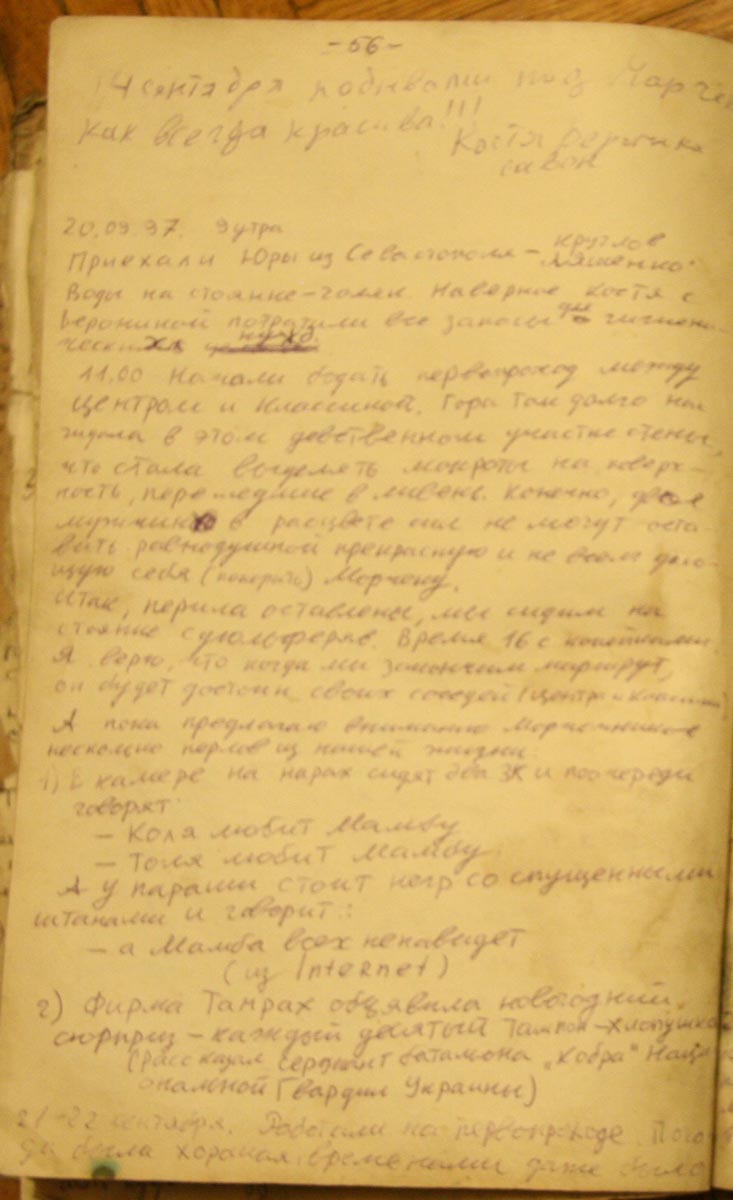 - 56 -
14 сентября побывали под
как всегда красива!!! Костя
20.09.97. 9 утра
Приехали Юры из Севастополя - Круглов
Ляшенко.
Воды на стоянке - голяк. Наверное Костя с
потратили все запасы для гигиени-
ческих нужд.
11.00 Начали бодать первопроход между
Центром и Классикой. Гора так долго
в этом девственном участке стены,
что стала выделять мокроты на поверх-
ность, перешедшие в ливень. Конечно, двое
в расцвете сил не могут оста-
вить равнодушной прекрасную и не всем даю-
щую себя (покорить) Морчеку.
Итак, перила оставлены, мы сидим на
стоянке с Время 16 с копейками.
Я верю, что когда мы закончим маршрут,
он будет достоин своих соседей (Центр и Классика)
А пока предлагаю вниманию
несколько перлов из нашей жизни:
1) В камере на нарах сидят два ЗК и поочереди
говорят:
- Коля любит Мамбу
- Толя любит Мамбу
А у параши стоит негр со спущенными
штанами и говорит:
- а Мамба всех ненавидет
(из Internet)
2) Фирма Тампах объявила новогодний
сюрприз - каждый десятый Тампон - хлопушка
(Рассказал сержант батальона „Кобра" Наци
ональной Гвардии Украины)
21-22 сентября. Работали на первопроходе. Пого-
да была хорошая временами даже было